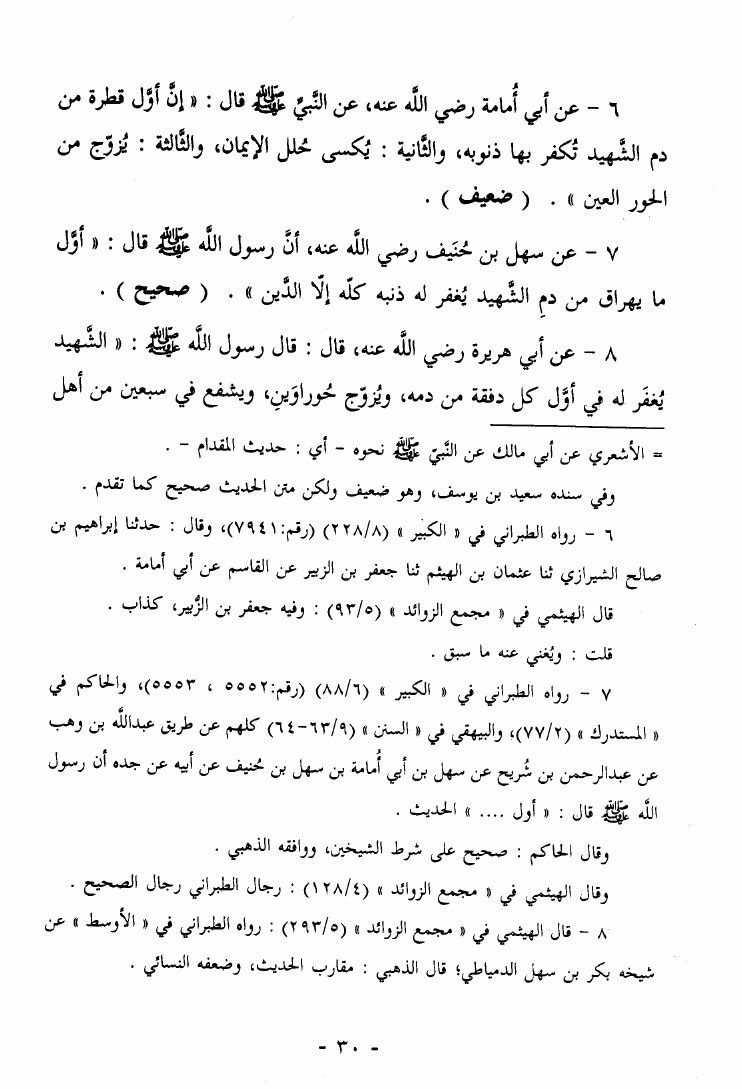 ٦ - عن أبي أُمامة رضي اللَّه عنه، عن النَّبيِّ ﷺ قال : « إنَّ أوَّل قطرة من
دم الشَّهيد تُكفر بها ذنوبه، والثَّانية : يُكسى حُلل الإيمان، والثَّالثة : يُزوّج من
الحور العين » . ( ضعيف ) .
٧ - عن سهل بن حُنَيف رضي اللَّه عنه، أنَّ رسول اللَّه ﷺ قال : « أوَّل
ما يهراق من دمِ الشَّهيد يُغفر له ذنبه كلّه إلَّا الدَّين » . ( صحيح ) .
٨ - عن أبي هريرة رضي اللَّه عنه، قال : قال رسول اللَّه ﷺ : « الشَّهيد
يُغفَر له في أوَّل كل دفقة من دمه، ويُزوّج حُوراوَينِ، ويشفع في سبعين من أهل
= الأشعري عن أبي مالك عن النَّبيّ ﷺ نحوه - أي : حديث المقدام - .
وفي سنده سعيد بن يوسف، وهو ضعيف ولكن متن الحديث صحيح كما تقدم .
٦ - رواه الطبراني في « الكبير » (٢٢٨/٨) (رقم:٧٩٤١)، وقال : حدثنا إبراهيم بن
صالح الشيرازي ثنا عثمان بن الهيثم ثنا جعفر بن الزبير عن القاسم عن أبي أمامة .
قال الهيثمي في « مجمع الزوائد » (٩٣/٥) : وفيه جعفر بن الزُّبير، كذاب .
قلت : ويُغني عنه ما سبق .
٧ - رواه الطبراني في « الكبير » (٨٨/٦) (رقم:٥٥٥٢ ، ٥٥٥٣)، والحاكم في
« المستدرك » (٧٧/٢)، والبيهقي في « السنن » (٦٣/٩-٦٤) كلهم عن طريق عبداللَّه بن وهب
عن عبدالرحمن بن شُريح عن سهل بن أبي أُمامة بن سهل بن حُنيف عن أبيه عن جده أن رسول
اللَّه ﷺ قال : « أول .... » الحديث .
وقال الحاكم : صحيح على شرط الشيخين، ووافقه الذهبي .
وقال الهيثمي في « مجمع الزوائد » (١٢٨/٤) : رجال الطبراني رجال الصحيح .
٨ - قال الهيثمي في « مجمع الزوائد » (٢٩٣/٥) : رواه الطبراني في « الأوسط » عن
شيخه بكر بن سهل الدمياطي؛ قال الذهبي : مقارب الحديث، وضعفه النسائي .
- ٣٠ -